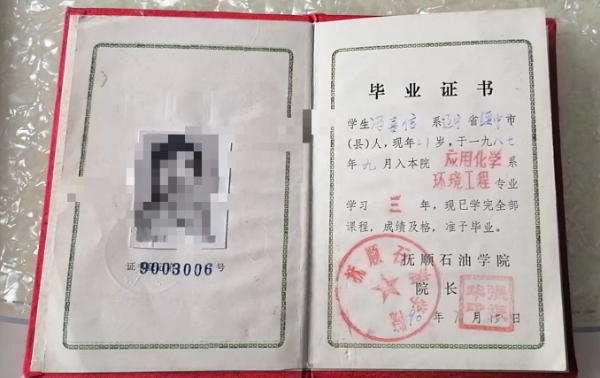 证 号
9003006
毕业证书
学生 系辽宁省 市
(县)人，现年21岁，于一九八七
年九月入本院 应用化学系
环境工程 专业
学习 三 年，现已学完全部
课程，成绩及格，准予毕业。
抚顺石油学院
院长
90年7月15日
抚顺石油学院